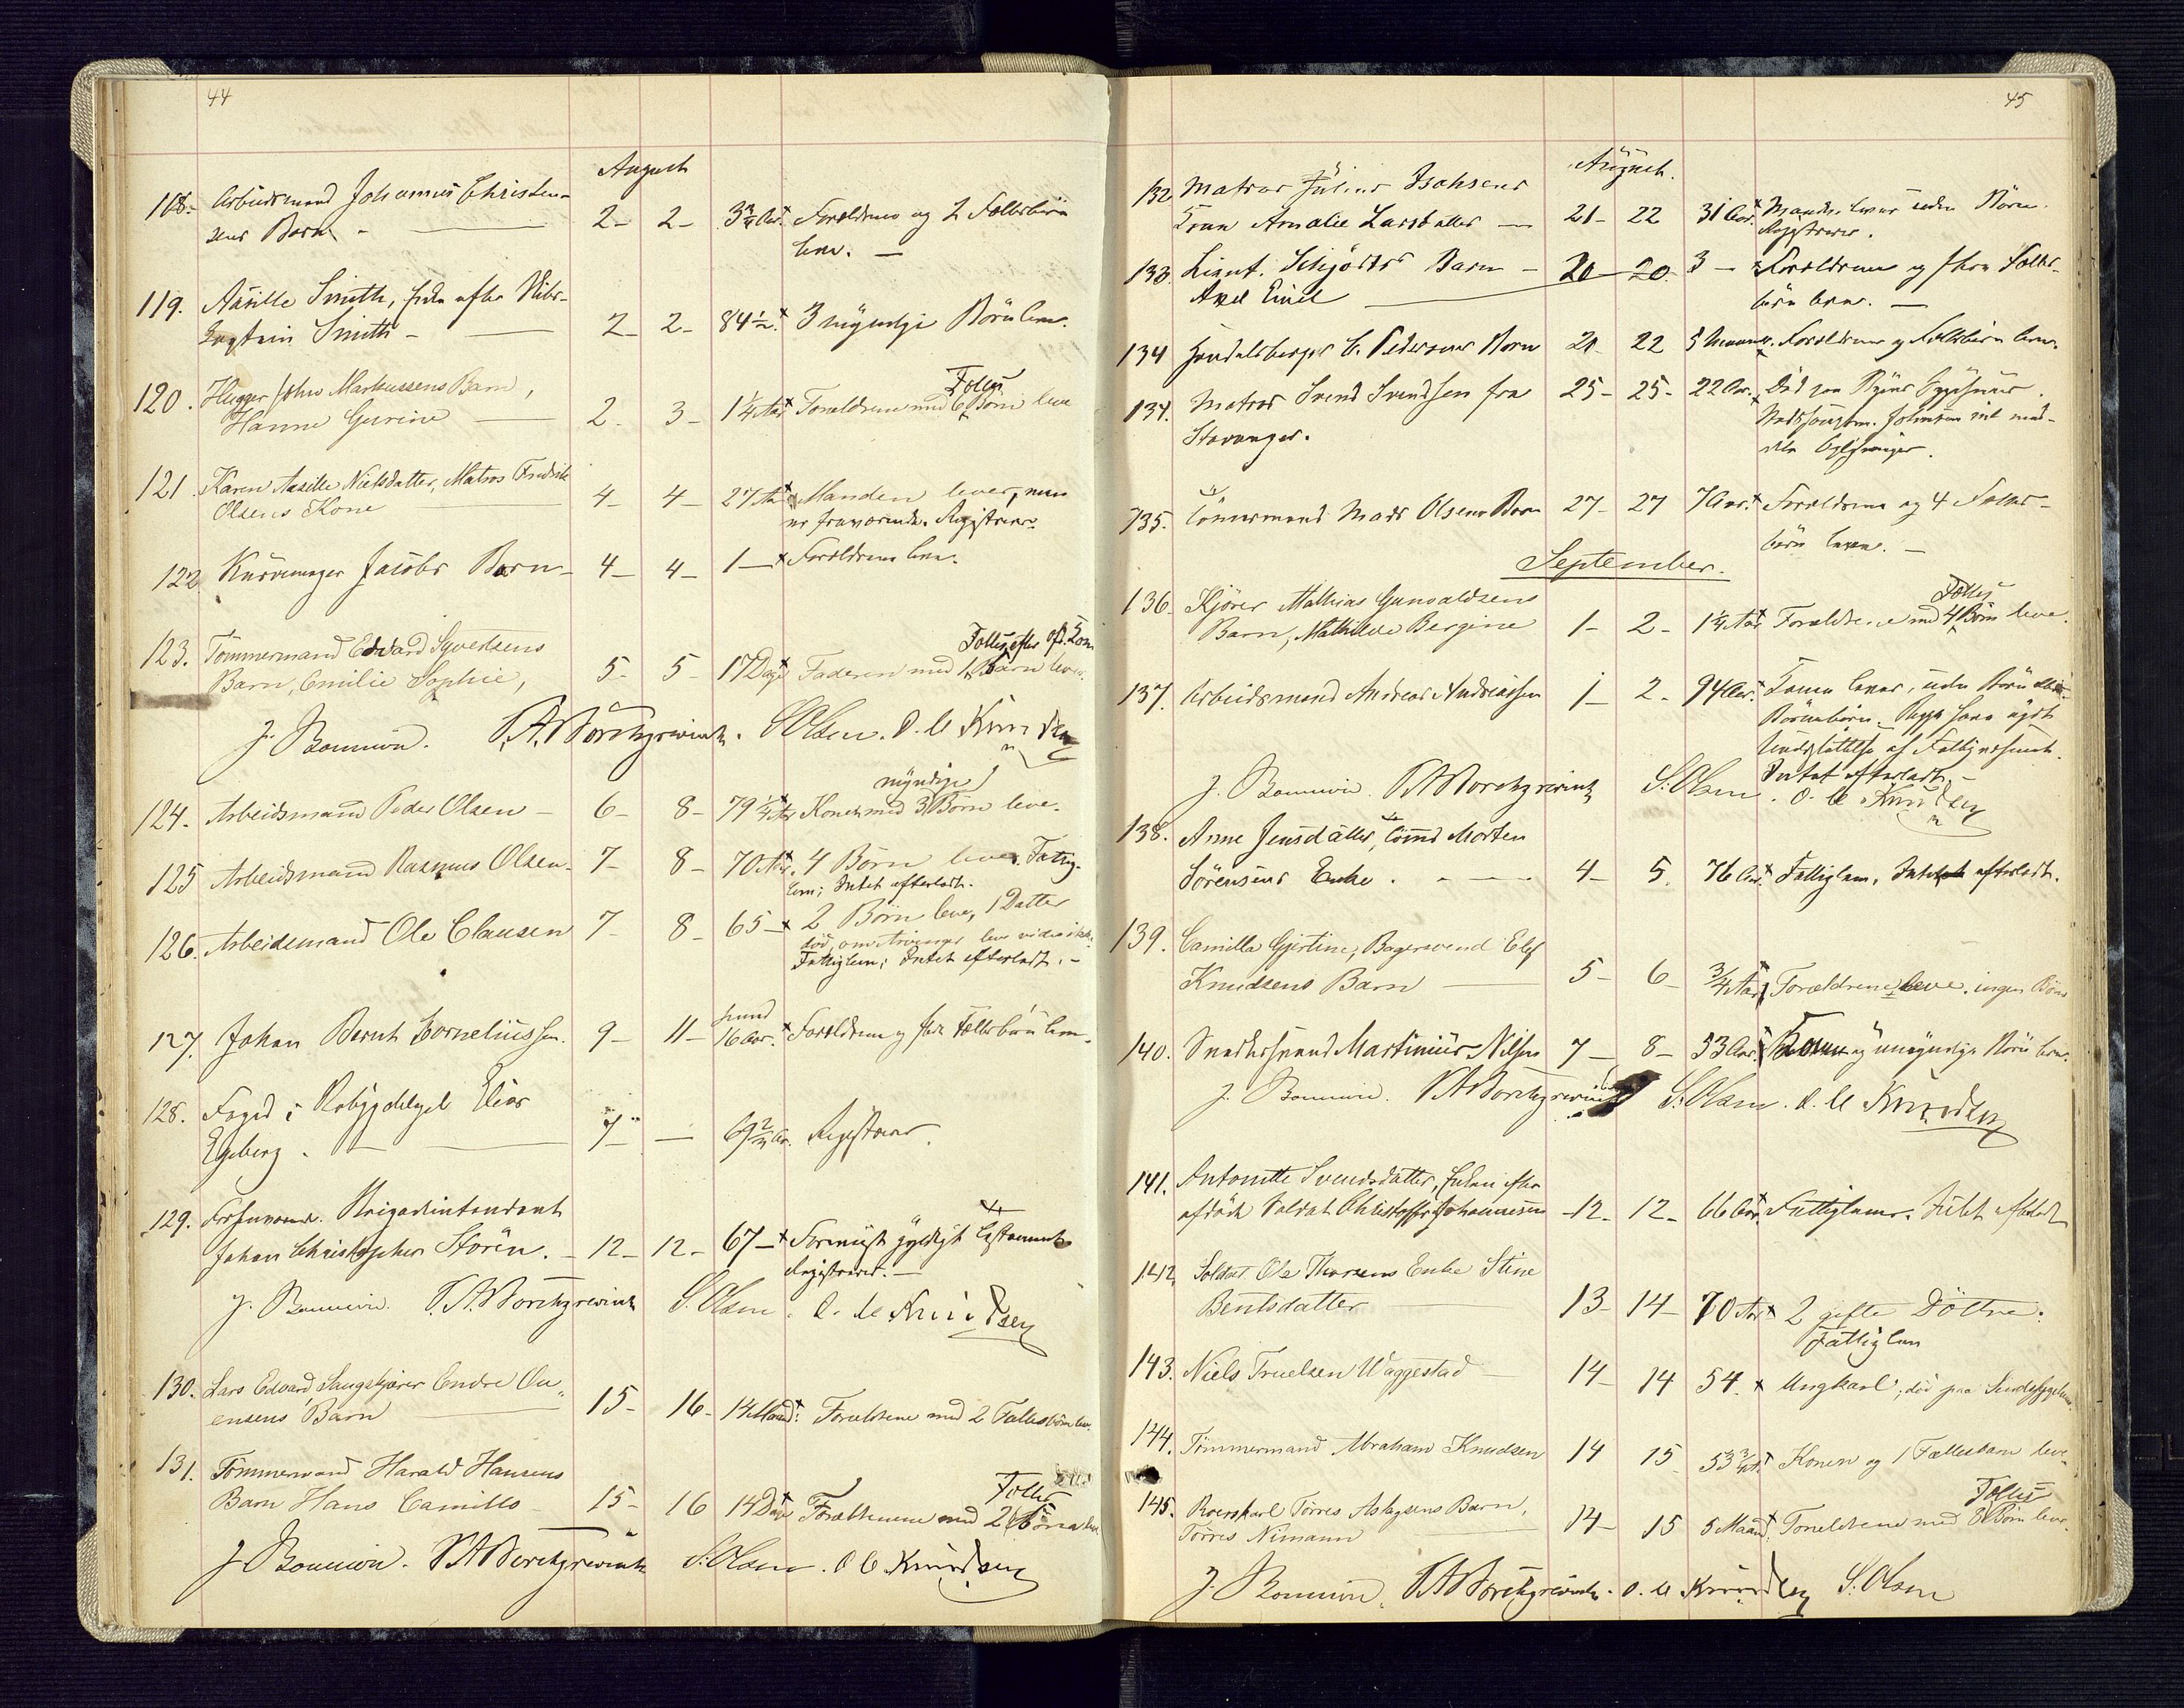 44
August
118. Arbeidsmand Johannes Christen-
sens Barn - 2- 2- 3¾ Aar. Forældrene og 2 Fællesbørn
leve. -
119. Aasille Smith, Enke efter Skibs-
Captain Smith - 2- 2- 84½. 3 myndige Børn leve.
120. Hugger John Markussens Barn,
Hanne Gurine 2- 3- 1¼ Aar Forældrene med 6 Fælles Børn leve
121. Karen Aasille Nielsdatter, Matros Fredrik
Olsens Kone 4- 4- 27 Aar Manden lever, men
er fraværende. Registreres.
122 Kurvemager Jacobs Barn 4- 4- 1 - Forældrene leve.
123. Tømmermand Edvard Syvertsens
Barn, Emilie Sophie, 5- 5- 17 Dage Faderen med 1 Fælles Barn lever.
efter afd. Kone
J. Bommen. T.A. Borchgrevink. S. Olsen. O. C. Knudsen
124. Arbeidsmand Peder Olsen - 6- 8- 79¼ Aar Konen med 3 myndige Børn leve.
125 Arbeidsmand Rasmus Olsen. 7- 8- 70 Aar. 4 Børn leve. Fattig-
lem; Intet efterladt.
126. Arbeidsmand Ole Clausen 7- 8- 65 - 2 Børn leve, 1 Datter
død, om Arvinger leve vides ikke.
Fattiglem; Intet efterladt. -
127. Johan Bernt Corneliussen. 9- 11- 16 Aar. Forældrene og flere Fællesbørn leve.
128. Foged i Robygdelaget Elias
Egeberg. 7- - 69 Aar. Registreres.
129. Forhenværende Brigadeintendant
Johan Christopher Støren. - 12- 12- 67- Formeent gyldigt Testament.
Registreres. -
J. Bommen. T.A. Borchgrevink S. Olsen. O. C. Knudsen
130. Lars Edvard, Saugskjærer Endre Ou-
ensens Barn 15- 16- 14 Maand: Forældrene med 2 Fællesbørn leve.
131. Tømmermand Harald Hansens
Barn Hans Camillo - 15- 16 14 Dage Forældrene med 2 Fælles Børn leve
J. Bommen. T.A. Borchgrevink S. Olsen. O. C. Knudsen
45
August.
132 Matros Julius Isaksens
Kone Amalie Larsdatter - 21- 22 31 Aar. Manden lever uden Børn.
Registreres.
133. Lieut. Schjøtts Barn - 20- 20. 3 - Forældrene og flere Fælles-
Axel Emil børn leve. -
134 Handelsborger C. Pedersens Barn 21- 22 5 Maaned. Forældrene og Fællesbørn leve.
134. Matros Svend Svendsen fra 25- 25- 22 Aar. Død paa Byens Sygehuus.
Stavanger.
135. Tømmermand Mads Olsens Barn 27- 27 7 Aar. Forældrene og 4 Fælles-
børn leve. -
September.
136. Kjører Mathias Gunvaldsens
Barn, Mathilde Bergine 1- 2- 1¼ Aar Forældrene med 4 Fælles Børn leve.
137. Arbeidsmand Andreas Andreassen 1- 2- 94 Aar. Konen lever, uden Børn eller
Børnebørn. Begge have nydt
Understøttelse af Fattigvæsenet.
Intet efterladt. -
J. Bommen. T.A. Borchgrevink S. Olsen. O. C. Knudsen
138. Anne Jensdatter, Tømd Morten
Sørensens Enke. - 4- 5. 76 Aar. Fattiglem. Intet efterladt.
139. Camilla Gjertine, Bagersvend Elef
Knudsens Barn 5- 6- ¾ Aar Forældrene leve. ingen Børn
140. Snedkersvend Martinius Nilsen 7- 8- 53 Aar. Kone og umyndige Børn leve.
J. Bommen. T.A. Borchgrevink S. Olsen. O. C. Knudsen
141. Antonette Svendsdatter, Enken efter
afdøde Soldat Christoffer Johannesen 12- 12- 66 Aar. Fattiglem. Intet efterladt
142. Soldat Ole Thorsens Enke Stine
Bentsdatter 13- 14- 70 Aar 2 gifte Døttre.
Fattiglem
143. Niels Truelsen Waggestad - 14- 14 54. Ungkarl, død paa Sindssygehuus.
144. Tømmermand Abraham Knudsen 14 15 53¾ Konen og 1 Fællesbarn leve.
145. Roerskarl Tørres Aslagsens Barn,
Tørres Nimann 14- 15 5 Maand. Forældrene med 8 Fælles Børn leve.
J. Bommen. T.A. Borchgrevink. O. C. Knudsen S. Olsen